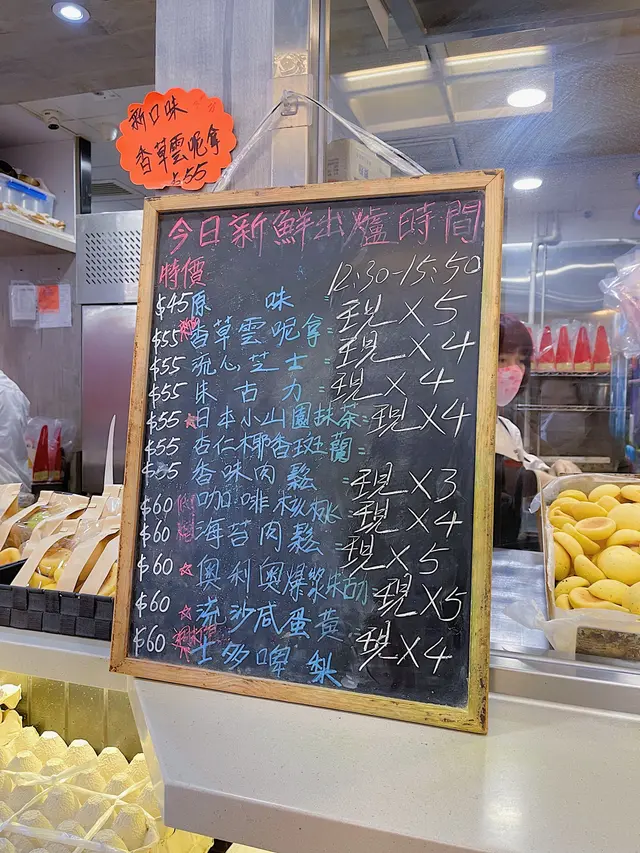 新口味
香草雲呢拿
$55
今日新鮮出爐時間
特價 12:30-15:50
$45 原味 = 現 X 5
$55 香草雲呢拿 = 現 X 4
$55 流心芝士 = 現 X 4
$55 朱古力 = 現 X 4
$55 ☆日本小山園抹茶=
$55 杏仁椰香斑蘭=
$55 香味肉鬆 = 現 X 3
$60 咖啡核桃 現 X 4
$60 海苔肉鬆 = 現 X 5
$60 ☆奧利奧爆漿朱古力 現 X 5
$60 ☆流沙咸蛋黃
$60 士多啤梨 現 X 4